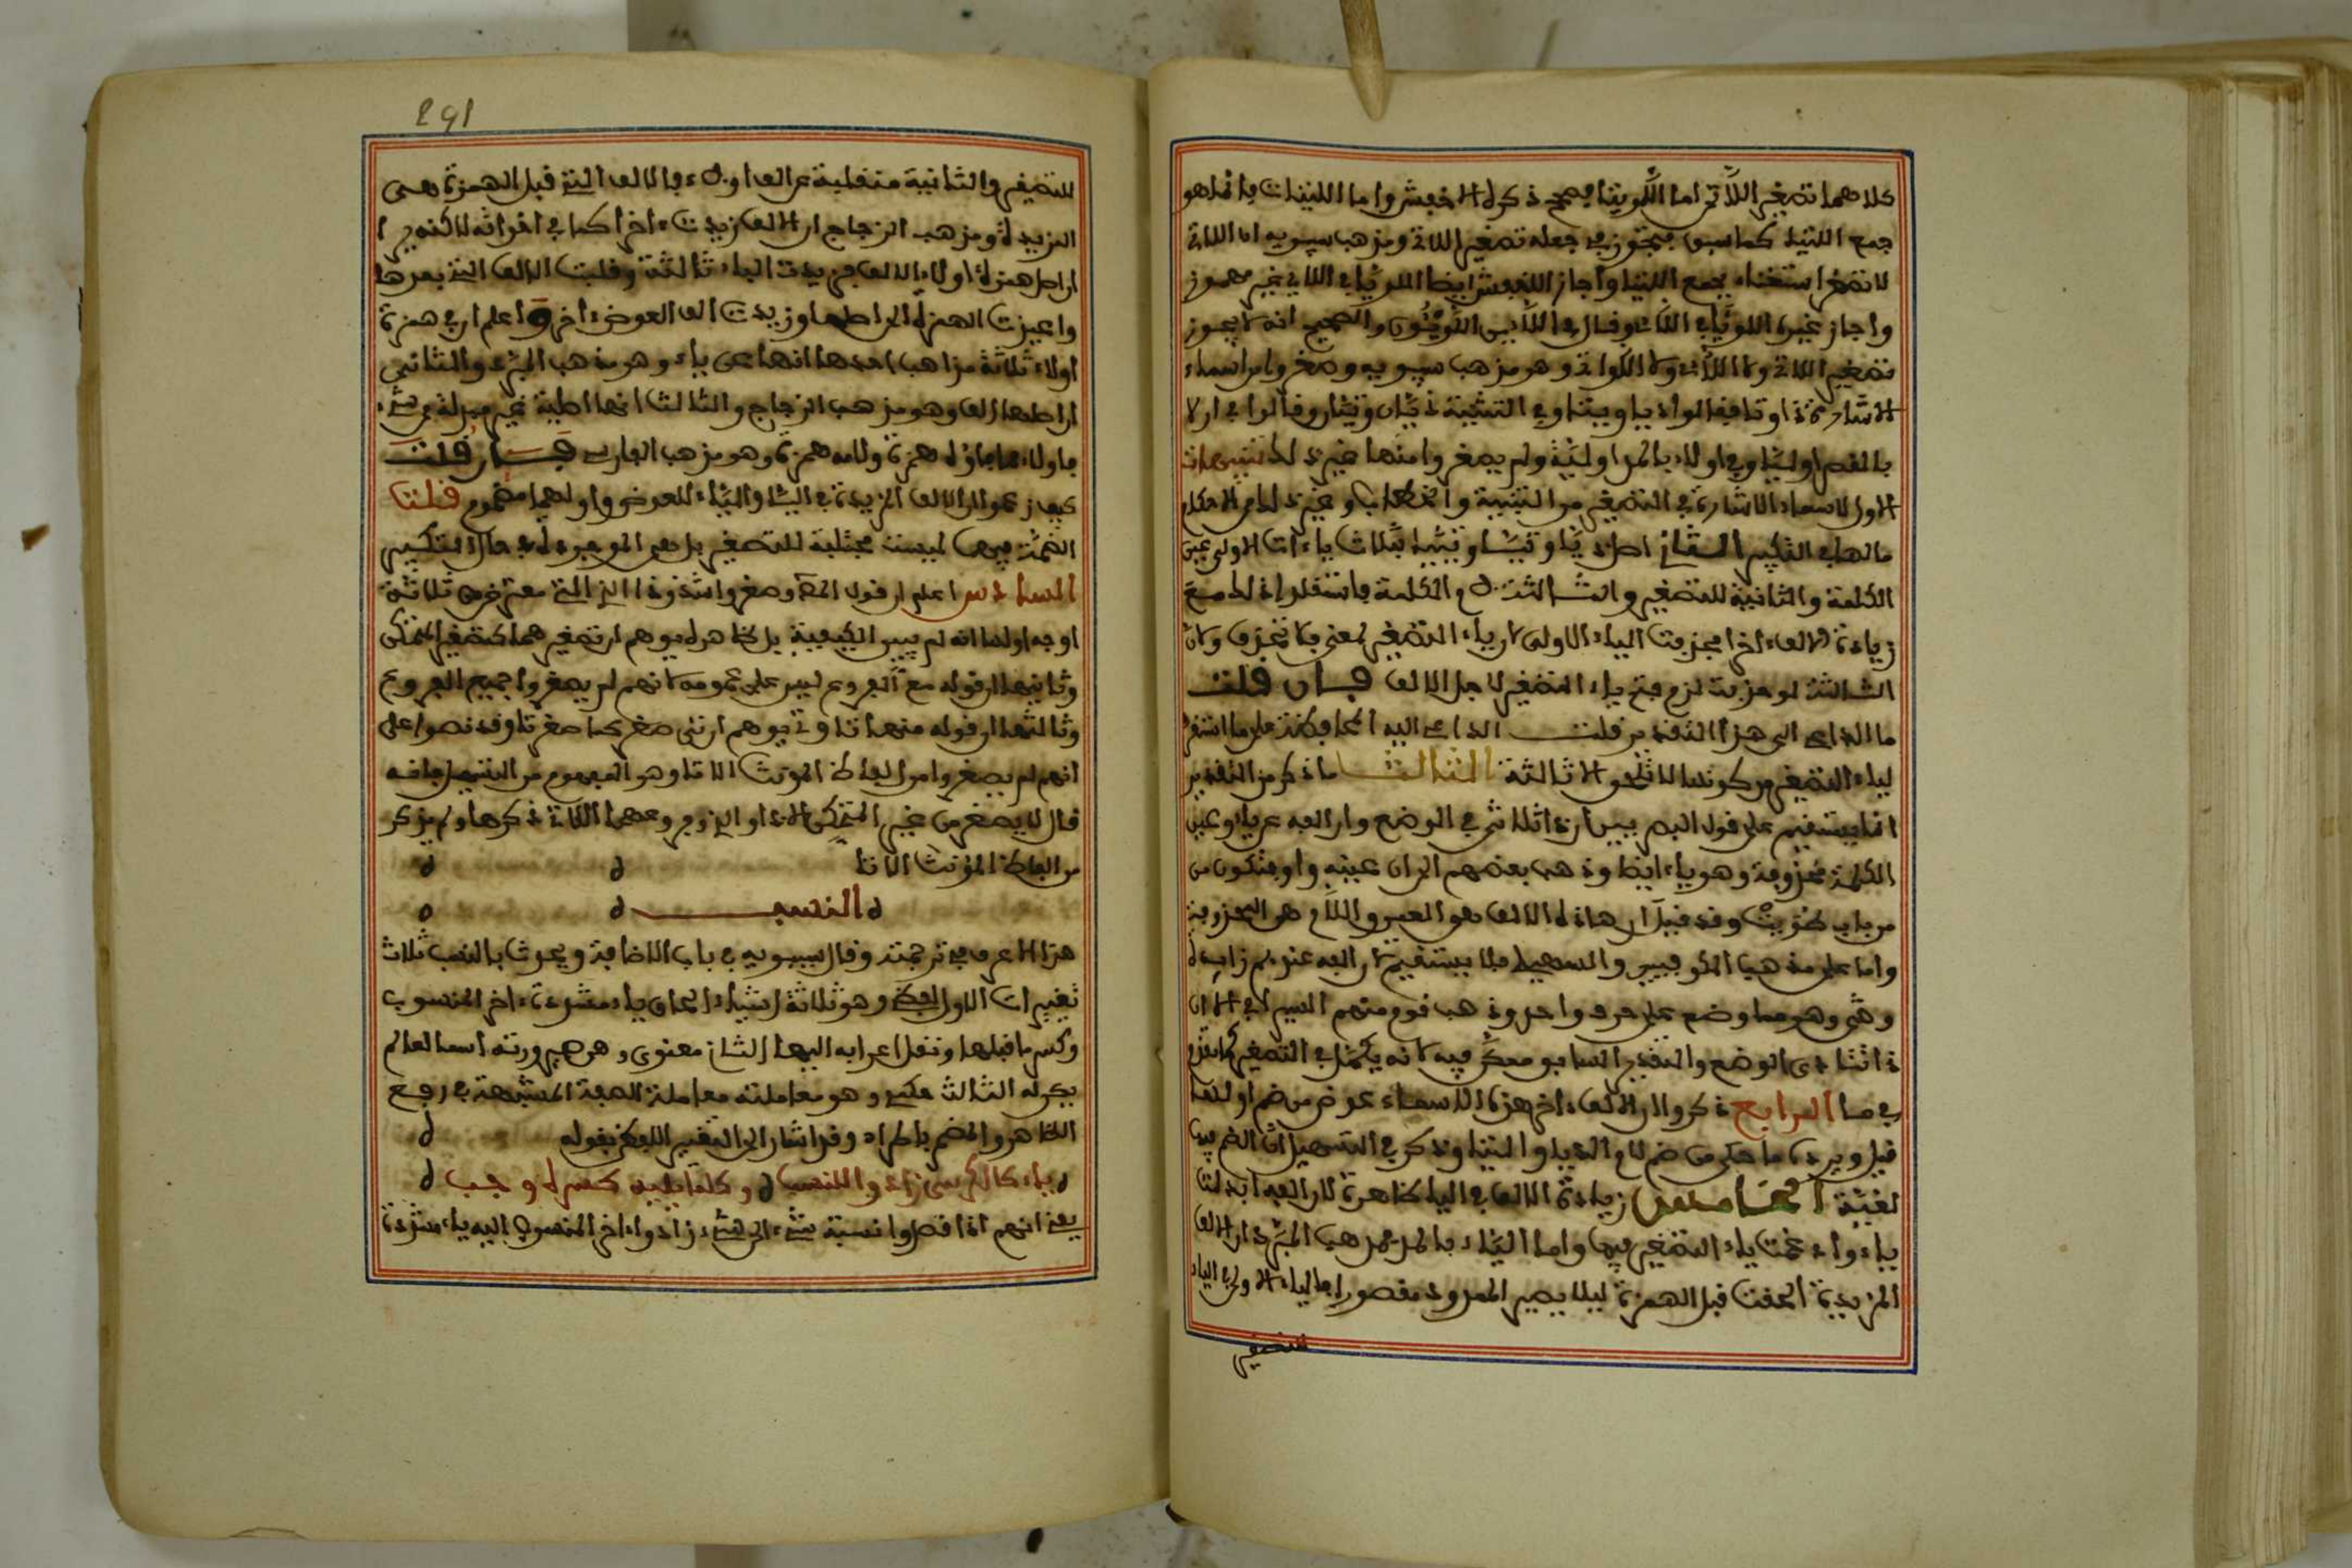 كلاهما تصغير اللاتي اما اللويتا فصحيح ذكره الاخفش واما اللتيات فانما هو
جمع اللتيا كما سبق فتجوز في جعله تصغير اللاتي ومذهب سيبويه ان اللاتي
لا تصغر استغناء بجمع اللتيا واجاز الاخفش ايضا اللويا في اللاي غير مهموز
واجاز غيره اللويا في اللاي وقال في اللايين اللويئون والصحيح انه لا يجوز
تصغير اللاتي ولا اللاي ولا اللواتي وهو مذهب سيبويه وصغروا من اسماء
الاشارة ذا وتا فقالوا ذيا وتيا وفي التثنية ذيان وتيان وقالوا في اولا
بالقصر اوليا وفي اولاء بالمد اولياء ولم يصغروا منها غير ذلك تنبيهات
الاول لاسماء الاشارة في التصغير من التثنية والخطاب وغير ذلك من الاحكام
ما لها في التكبير الثاني اصل ذيا وتيا ذييا وتييا بثلاث ياءات الاولى عين
الكلمة والثانية للتصغير والثالثة لام الكلمة فاستثقلوا ذلك مع
زيادة الالف اخرا فحذفت الياء الاولى لان ياء التصغير لمعنى فلا تحذف ولان
الثالثة لو حذفت لزم فتح ياء التصغير لاجل الالف فان قلت
ما الداعي الى هذا التقدير قلت الداعي اليه المحافظة على ما استقر
لياء التصغير من كونها لا تلحق الا ثالثة الثالث ما ذكر من التقدير
انما يستقيم على قول البصريين ان ذا ثلاثي في الوضع وان الفه عن ياء وعين
الكلمة محذوفة وهو ياء ايضا وذهب بعضهم الى ان عينه واو فتكون من
من باب طويت وقد قيل ان هاذه الالف هو العين واللام هو المحذوفة
واما على مذهب الكوفيين والسهيلي فلا يستقيم لان الفه عندهم زايدة
وهي وهو مما وضع على حرف واحد وذهب قوم منهم السيرافي الى ان
ذا ثنائي الوضع والتقدير السابق ممكن فيه لانه يكمل في التصغير كما تقدم
في ما الرابع ذكروا ان الالف اخر هذه الاسماء عوض من ضم اولها
قيل ويرده ما حكي من ضم لام اللذيا واللتيا وذكر في التسهيل ان الضم فيها
لغية الخامس زيادة الالف في اليا ظاهرة لان الفه ابدلت
ياء وادغمت ياء التصغير فيها واما الياء بالمد فمذهب المبرد ان الالف
المزيدة الحقت قبل الهمزة ليلا يصير الممدود مقصورا فالياء الاولى الياء
التصغير
291
للتصغير والثانية منقلبة عن الف اولاء والالف التي قبل الهمزة هي
المزيدة ومذهب الزجاج ان الالف زيدت اخرا كما في اخواته لاكنه يرى
ان اصل همزة اولاء الالف فزيدت الياء ثالثة وقلبت الالف التي بعدها
واعيدت الهمزة الى اصلها وزيدت الف العوض اخرا واعلم ان في همزة
اولاء ثلاثة مذاهب احدها انها عن ياء وهو مذهب المبرد والثاني
ان اصلها الف وهو مذهب الزجاج والثالث انها اصلية غير مبدلة من شيء
فاولاء مما فاؤه همزة ولامه همزة وهو مذهب الفارسي فان قلت
كيف زعموا ان الالف المزيدة في اليا والياء للعوض واولهما مضموم قلت
الضمة فيهما ليست مجتلبة للتصغير بل هي الموجودة في حال التكبير
السادس اعلم ان قول الناظم وصغروا شذوذا الذي التي معترض من ثلاثة
اوجه اولها انه لم يبين الكيفية بل ظاهره يوهم ان تصغيرهما كتصغير المتمكن
وثانيها ان قوله مع الفروع ليس على عمومه لانهم لم يصغروا جميع الفروع
وثالثها ان قوله منها تا وتي يوهم ان تي صغر كما صغر تا وقد نصوا على
انهم لم يصغروا من الفاظ المونث الا تا وهو المفهوم من التسهيل فانه
قال لا يصغر من غير المتمكن الا ذا والذي وفروعهما الاتي ذكرها ولم يذكر
من الفاظ المؤنث الا تا
النسب
هذا الاعرف في ترجمته وقال سيبويه في باب الاضافة ويحدث بالنسب ثلاث
تغييرات الاول لفظي وهو ثلاثة اشياء الحاق ياء مشددة اخر المنسوب
وكسر ما قبلها ونقل اعرابه اليها الثاني معنوي وهو صيرورته اسما لما لم
يكن له الثالث حكمي وهو معاملته معاملة الصفة المشبهة في رفع
الظاهر والمضمر باطراد وقد اشار الى التغيير اللفظي بقوله
ياء كياء الكرسي زادوا للنسب وكل ما تليه كسره وجب
يعني انهم اذا قصدوا نسبة شيء الى شيء زادوا اخر المنسوب اليه ياء مشددة